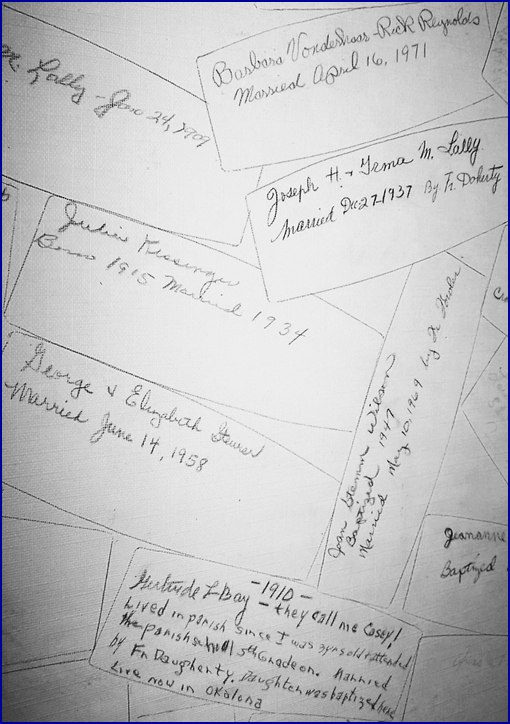 M. Lally - Jan 24, 1909
Barbara Vonderhaar - Rick Reynolds
Married April 16, 1971
Joseph H. & Irma M. Lally
Married Dec 27, 1937 By Fr. Doherty
Julius Kissinger
Born 1915 Married 1934
George & Elizabeth Steurer
Married June 14, 1958
Joan Stemm Wilson
Baptized 1947
Married May 10, 1969 by Fr.
Jeananne
Baptized
-1910-
Gertrude L Bay - they call me Casey!
Lived in parish since I was 2yrs old & attended
the parish school 5th Grade on. Married
by Fr. Daugherty. Daughter was baptized here
Live now in Okolona